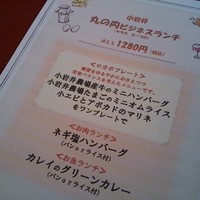 小岩井
丸の内ビジネスランチ
ALL 1280円(税込)
<ロカボプレート>
糖質をゆるやかにおさえつつ
小岩井農場産牛のミニハンバーグ
小岩井農場たまごのミニオムライス
小エビとアボカドのマリネ
をワンプレートで
<お肉ランチ>
ネギ塩ハンバーグ
(パンorライス付)
<お魚ランチ>
カレイのグリーンカレー
(パンorライス付)